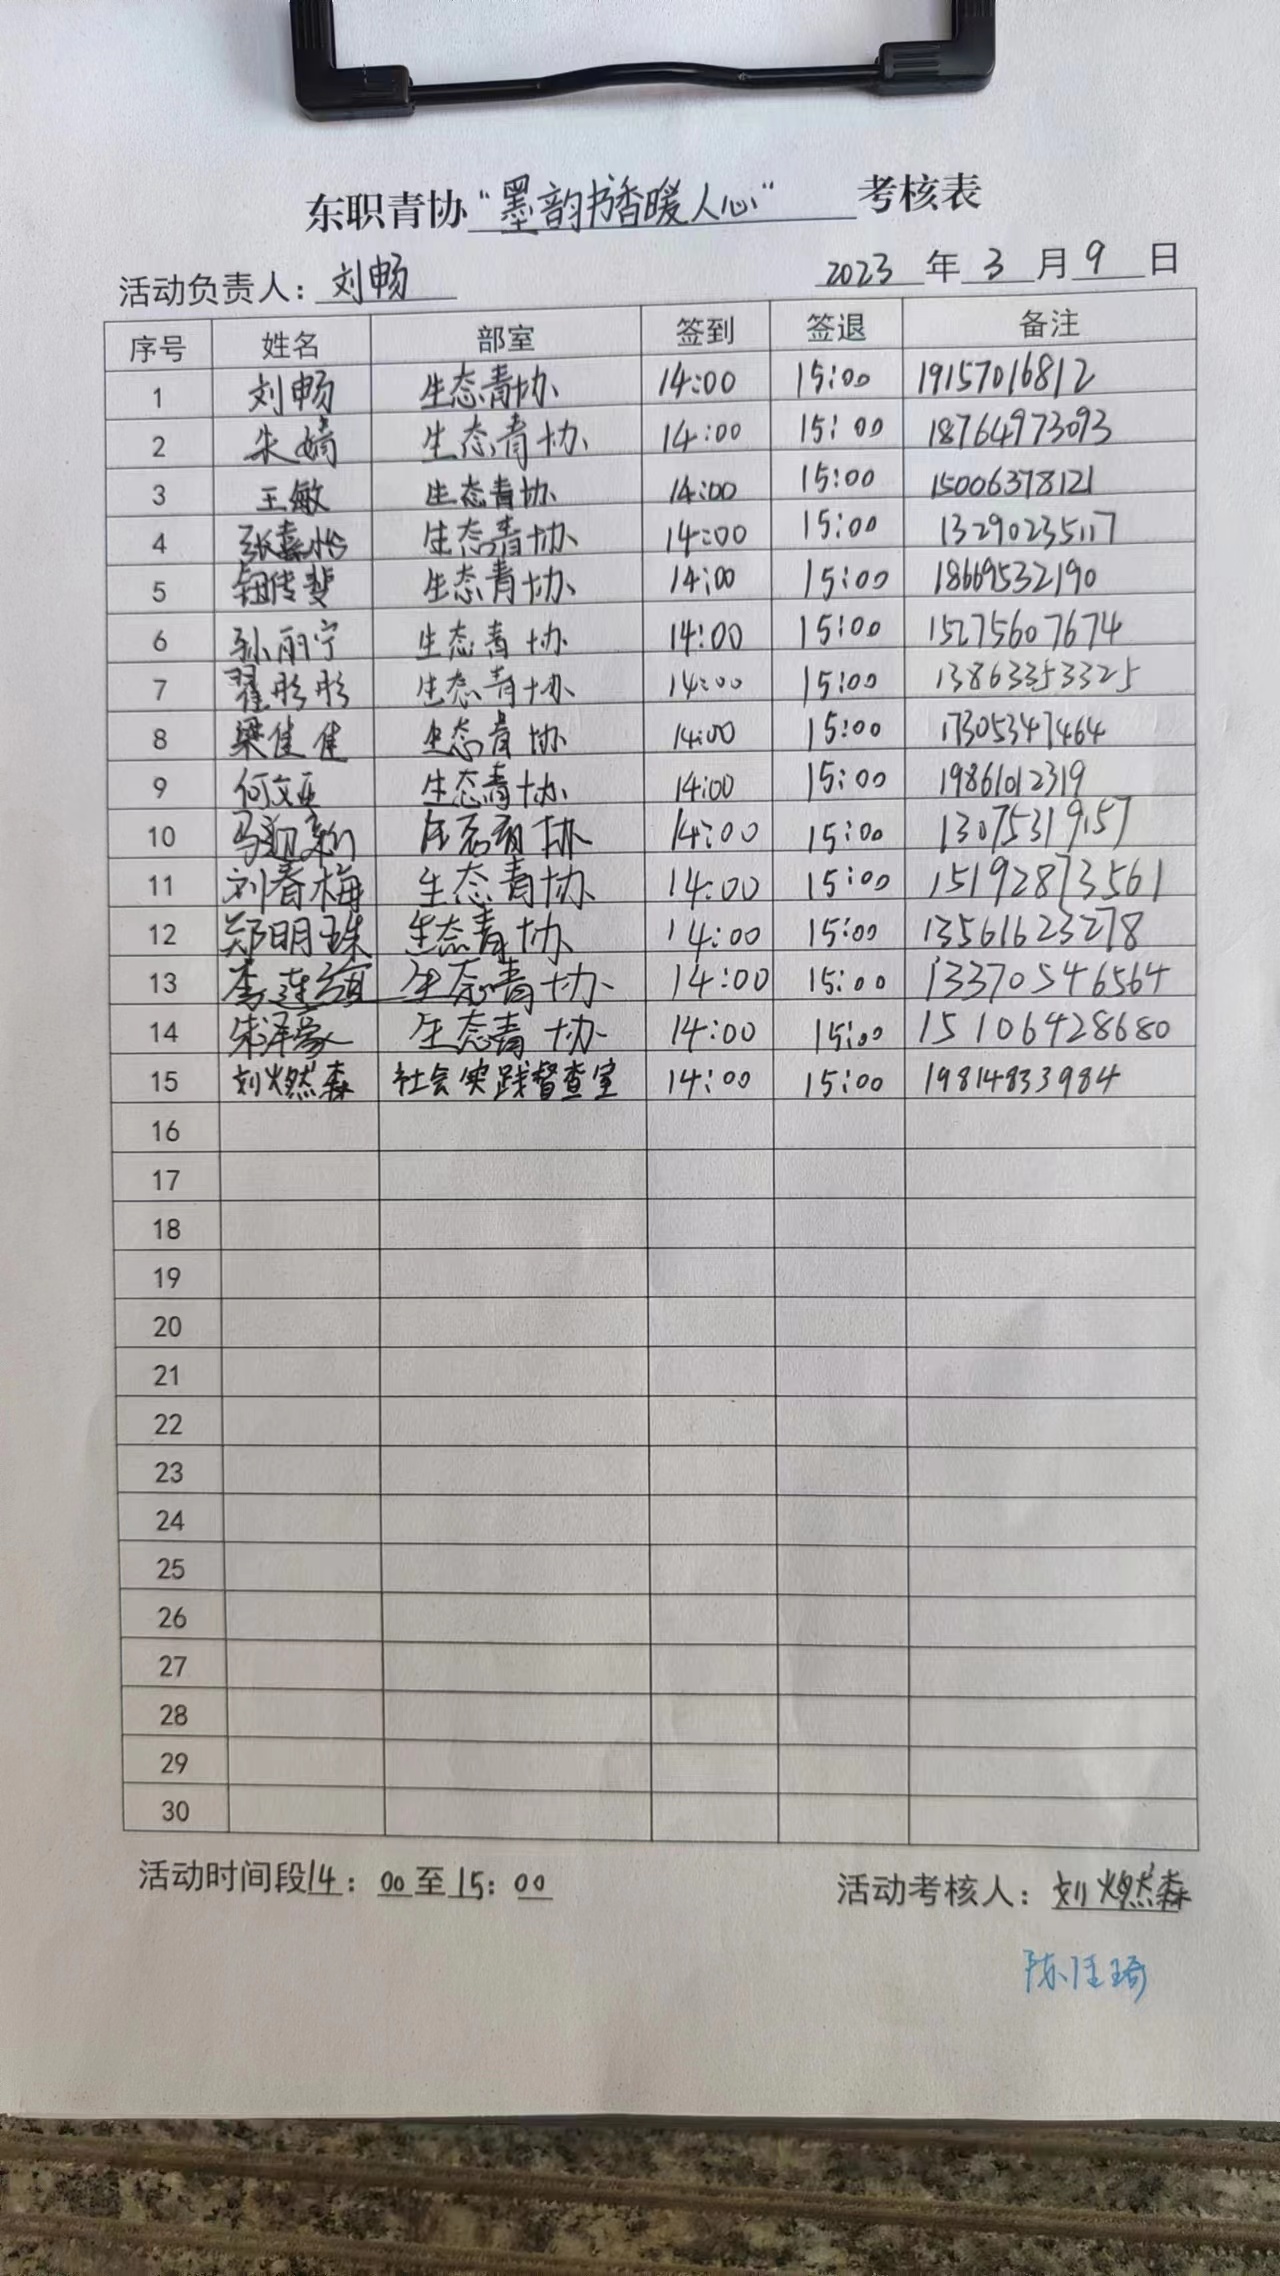 东职青协“墨韵书香暖人心”考核表
活动负责人：刘畅 2023年3月9日
序号 姓名 部室 签到 签退 备注
1 刘畅 生态青协 14:00 15:00 19157016812
2 朱嫡 生态青协 14:00 15:00 18764973093
3 王敏 生态青协 14:00 15:00 15006378121
4 张嘉怡 生态青协 14:00 15:00 13290235117
5 钮传斐 生态青协 14:00 15:00 18669532190
6 孙丽宁 生态青协 14:00 15:00 15275607674
7 翟彤彤 生态青协 14:00 15:00 13863353325
8 梁佳佳 生态青协 14:00 15:00 17305347464
9 何文亚 生态青协 14:00 15:00 19861012319
10 马 生态青协 14:00 15:00 13075319157
11 刘春梅 生态青协 14:00 15:00 15192873561
12 郑明珠 生态青协 14:00 15:00 13561623278
13 李连 生态青协 14:00 15:00 13370546564
14 朱泽豪 生态青协 14:00 15:00 15106428680
15 刘燃森 社会实践督查室 14:00 15:00 19814833984
16
17
18
19
20
21
22
23
24
25
26
27
28
29
30
活动时间段14：00至15：00 活动考核人：刘燃森
陈佳琦